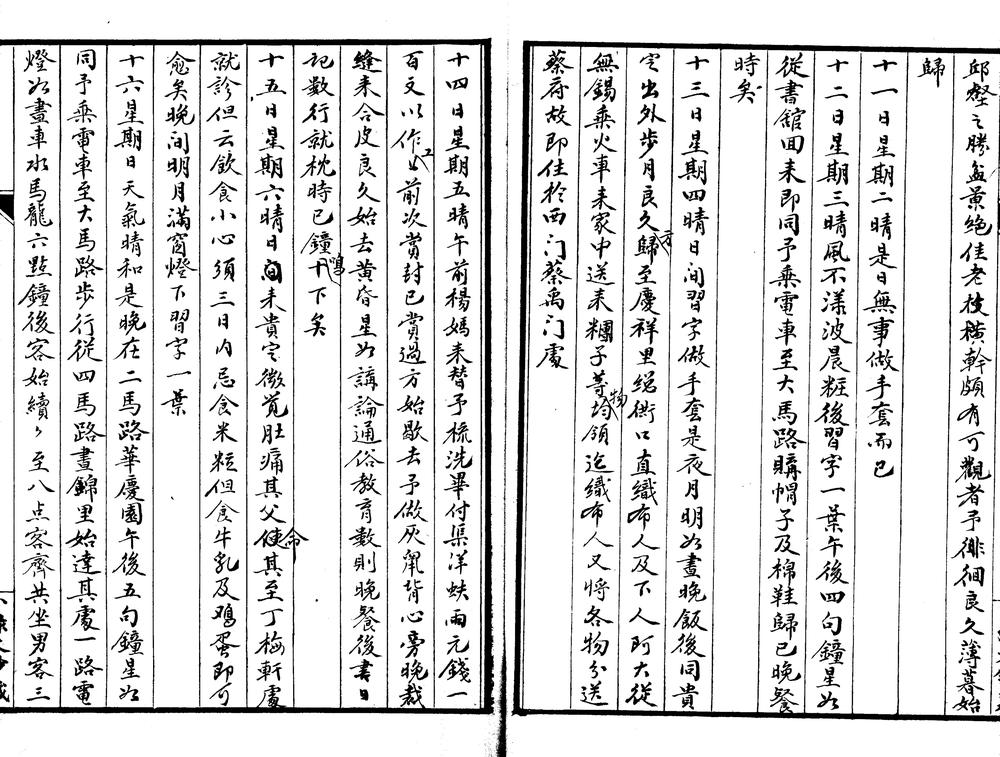 邱壑之勝盆景絕佳老枝橫幹頗有可觀者予徘徊良久薄暮始
歸
十一日星期二晴是日無事做手套而已
十二日星期三晴風不漾波晨粧後習字一葉午後四句鐘星如
從書館回來即同予乘電車至大馬路購帽子及棉鞋歸已晚餐
時矣
十三日星期四晴日间習字做手套是夜月明如晝晚飯後同貴
定出外步月良久方歸至慶祥里總衖口直織布人及下人阿大從
無錫乘火車来家中送来糰子等物均領迄織布人又將各物分送
蔡府故即住於西门蔡禹门處
十四日星期五晴午前楊媽来替予梳洗畢付渠洋蚨兩元錢一
百文以作工前次賞封已賞過方始歇去予做灰鼠背心旁晚裁
縫来合皮良久始去黄昏星如講論通俗教育數則晚餐後書日
記數行就枕時已鐘鳴十下矣
十五日星期六晴日间来貴定微覚肚痛其父命其至丁梅軒處
就診但云飲食小心須三日内忌食米粒但食牛乳及鸡蛋即可
愈矣晚间明月滿窗燈下習字一葉
十六星期日天氣晴和是晚在二馬路華慶園午後五句鐘星如
同予乘電車至大馬路步行從四馬路晝錦里始達其處一路電
燈如晝車水馬龍六點鐘後客始續々至八点客齊共坐男客三